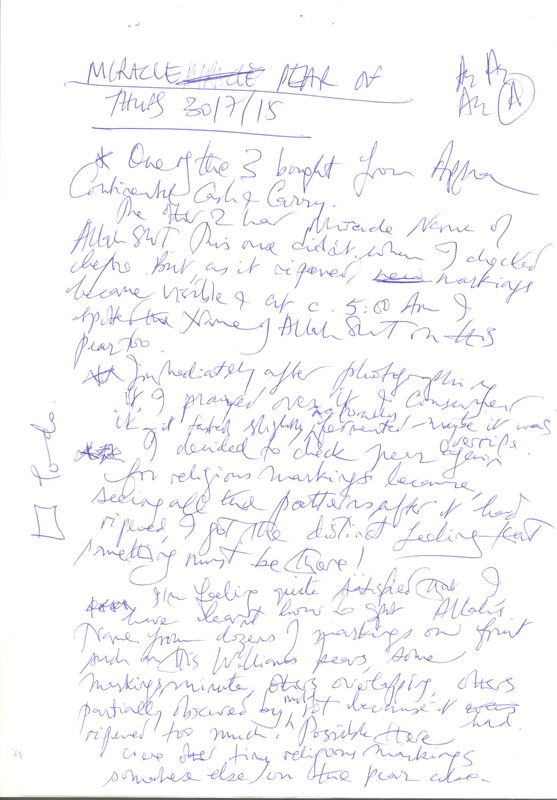 MIRACLE PEAR OF
THURS 30/7/15
* One of the 3 bought from Appna
Continental Cash & Carry.
The other 2 had Miracle Name of
Allah SWT This one didn't when I checked
before. But as it ripened, new markings
became visible & at c. 5:00 Am I
spotted the Name of Allah SWT on this
pear too.
** Immediately after photographing
it, I prayed over it & consumed
it - it tasted slightly naturally fermented - maybe it was
overripe.
*** I decided to check pear again
for religious markings because,
seeing all the patterns after it had
ripened I got the distinct feeling that
something must be there!
**** I'm feeling quite satisfied that I
have learnt how to spot Allah's
Name from dozens of markings on fruit
such as this Williams pears, some
markings minute, others overlapping, others
partially obscured by rot because it had
ripened too much. Possible there
were other tiny religious markings
somewhere else on the pear also.
To-do